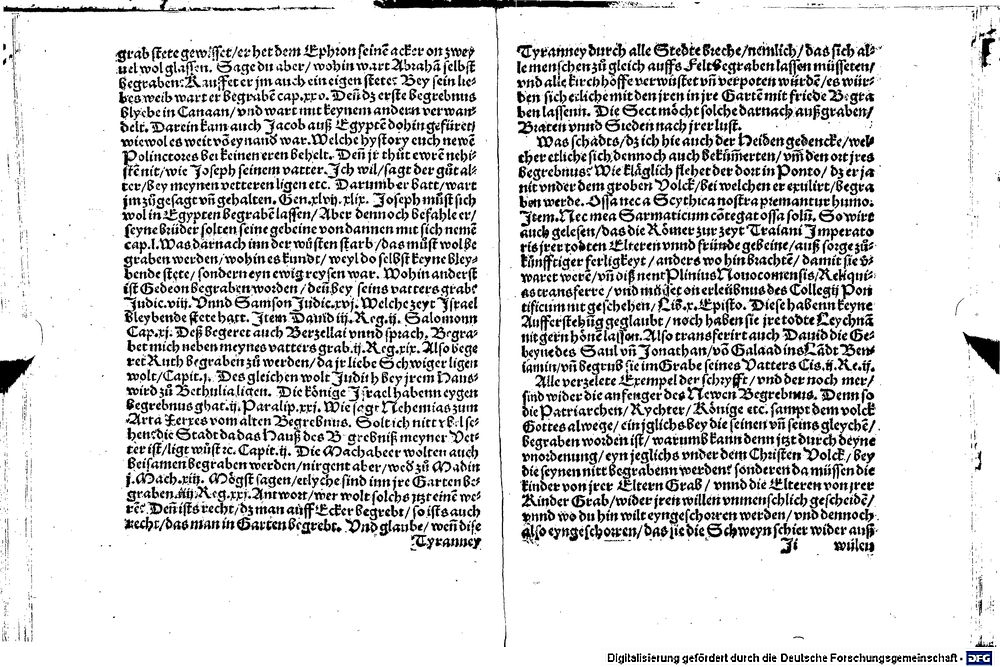 grab stete gewisset/er het dem Ephron seinē acker on zwey
uel wol glassen. Sage du aber/wohin wart Abrahā selbst
begraben: Kauffet er jm auch ein eigen stete: Bey sein lie-
bes weib wart er begrabē cap.xxv. Deñ dz erste begrebnus
blybe in Canaan/vnd wart mit keynem andern verwan-
delt. Darein kam auch Jacob auß Egyptē dohin gefüret/
wie wol es weit vō eynand war. Welche hystory euch newē
Polinctores bei keinen eren behelt. Deñ jr thüt ewrē nehi-
stē nit/wie Joseph seinem vatter. Jch wil/sagt der güt al-
ter/bey meynen vetteren ligen etc. Darumb er batt/wart
jm zügesagt vñ gehalten. Gen.xlvij.xlix. Joseph müst sich
wol in Egypten begrabē lassen/Aber dennoch befahle er/
seyne brüder solten seine gebeine von dannen mit sich nemē
cap.l. Was darnach inn der wüsten starb/das müst wol be
graben werden/wohin es kundt/weyl do selbst keyne bley-
bende stete/sondern eyn ewig reysen war. Wohin anderst
ist Gedeon begraben worden/deñ bey seins vatters grab:
Judic.viij. Vnnd Samson Judic.xvj. Welche zeyt Jsrael
bleybende stete hatt. Jtem Dauid iij.Reg.ij. Salomonn
Cap.xj. Deß begeret auch Berzellai vnnd sprach, Begra-
bet mich neben meynes vatters grab.ij.Reg.xix. Also bege
ret Ruth begraben zü werden/da jr liebe Schwiger ligen
wolt/Capit.j. Des gleichen wolt Judith bey jrem Hans-
wird zü Bethulia ligen. Die könige Jsrael habenn eygen
begrebnus ghat.ij.Paralip.xxj. Wie sagt Nehemias zum
Arta Xerxes vom alten Begrebnus. Solt ich nitt vbel se-
hen: die Stadt da das Hauß des Begrebniß meyner Vet-
ter ist/ligt wüst ꝛc. Capit.ij. Die Machabeer wolten auch
beisamen begraben werden/nirgent aber/weð zü Madin
j.Mach.xiij. Mögst sagen/etlyche sind inn jre Garten be-
graben.iiij.Reg.xxj. Antwort/wer wolt solchs jtzt einē we-
rē: Deñ ists recht/dz man auff Ecker begrebt/so ists auch
recht/das man in Garten begrebt. Vnd glaube/weñ dise
Tyranney
Tyranney durch alle Stedte breche/nemlich/das sich al-
le menschen zü gleich auffs Felt begraben lassen müsseten/
vnd alle kirchhöffe verwüstet vñ verpoten würdē/es wür-
den sich etliche mit den jren in jre Gartē mit friede Begra
ben lassenn. Die Sect möcht solche darnach außgraben/
Braten vnnd Sieden nach jrer lust.
Was schadts/dz ich hie auch der Heiden gedencke/wel-
cher etliche sich dennoch auch bekümerten/vm̄ den ort jres
begrebnus: Wie kläglich flehet der dort in Ponto/dz er ja
nit vnder dem groben Volck/bei welchen er exulirt/begra
ben werde. Ossa nec a Scythica nostra premantur humo.
Jtem. Nec mea Sarmaticum cōtegat ossa solū. So wirt
auch gelesen/das die Römer zur zeyt Traiani Jmperato
ris jrer todten Elteren vnnd fründe gebeine/auß sorge zü-
künfftiger ferligkeyt/anders wo hin brachtē/damit sie v-
waret werē/vñ diß nent Plinius Nouocomensis/Reliqui-
as transferre/vnd müst on erleübnus des Collegij Pon
tificum nit geschehen/Lib.x.Episto. Diese habenn keyne
Aufferstehüg geglaubt/noch haben sie jre todte Leychnā
nit gern hōnē lassen. Also transferirt auch Dauid die Ge-
beyne des Saul vñ Jonathan/vō Galaad ins Lādt Ben-
iamin/vñ begrub sie im Grabe seines Vatters Cis.ij.Re.ij.
Alle verzelete Exempel der schryfft/vnd der noch mer/
sind wider die anfenger des Newen Begrebnus. Denn so
die Patriarchen/Rychter/Könige etc. sampt dem volck
Gottes alwege/ein jglichs bey die seinen vñ seins gleychē/
begraben worden ist/warumb kann denn jtzt durch deyne
vnordenung/eyn jeglichs vnder dem Christen Volck/bey
die seynen nitt begrabenn werden: sonderen da müssen die
kinder von jrer Eltern Grab/vnnd die Elteren von jrer
Kinder Grab/wider jren willen vnmenschlich gescheidē/
vnnd wo du hin wilt eyngeschorren werden/vnd dennoch
also eyngeschorren/das sie die Schweyn schier wider auß
Ji wülen
Digitalisierung gefördert durch die Deutsche Forschungsgemeinschaft - DFG